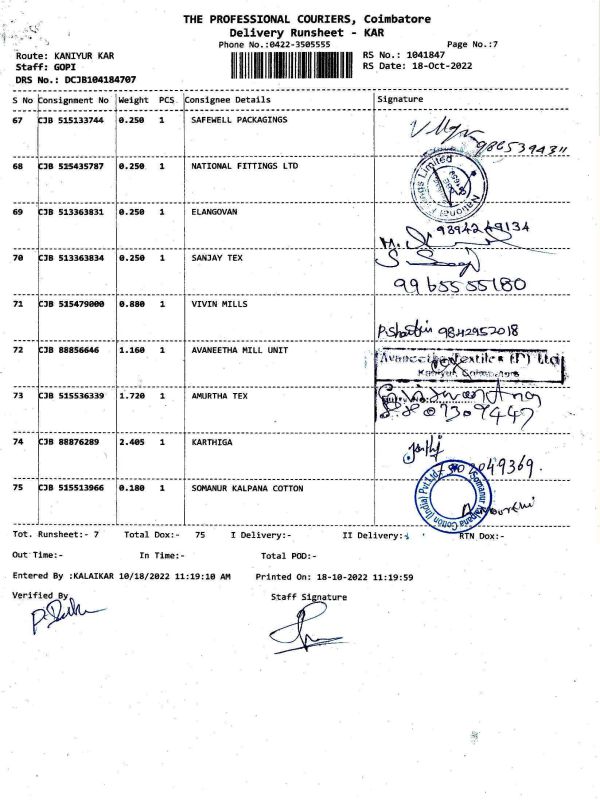 THE PROFESSIONAL COURIERS, Coimbatore
Delivery Runsheet - KAR
Phone No.:0422-3505555 Page No.:7
Route: KANIYUR KAR RS No.: 1041847
Staff: GOPI RS Date: 18-Oct-2022
DRS No.: DCJB104184707
S No Consignment No Weight PCS Consignee Details Signature
67 CJB 515133744 0.250 1 SAFEWELL PACKAGINGS
68 CJB 525435787 0.250 1 NATIONAL FITTINGS LTD
69 CJB 513363831 0.250 1 ELANGOVAN
9394249134
70 CJB 513363834 0.250 1 SANJAY TEX
9965555180
71 CJB 515479000 0.880 1 VIVIN MILLS
9842952018
72 CJB 88856646 1.160 1 AVANEETHA MILL UNIT
Avaneetha Textiles (P) Ltd
Kaniyur, Coimbatore
73 CJB 515536339 1.720 1 AMURTHA TEX
74 CJB 88876289 2.405 1 KARTHIGA
75 CJB 515513966 0.180 1 SOMANUR KALPANA COTTON
Somanur Kalpana Cotton (India) Pvt. Ltd.
Tot. Runsheet:- 7 Total Dox:- 75 I Delivery:- II Delivery:- RTN Dox:-
Out Time:- In Time:- Total POD:-
Entered By :KALAIKAR 10/18/2022 11:19:10 AM Printed On: 18-10-2022 11:19:59
Verified By Staff Signature